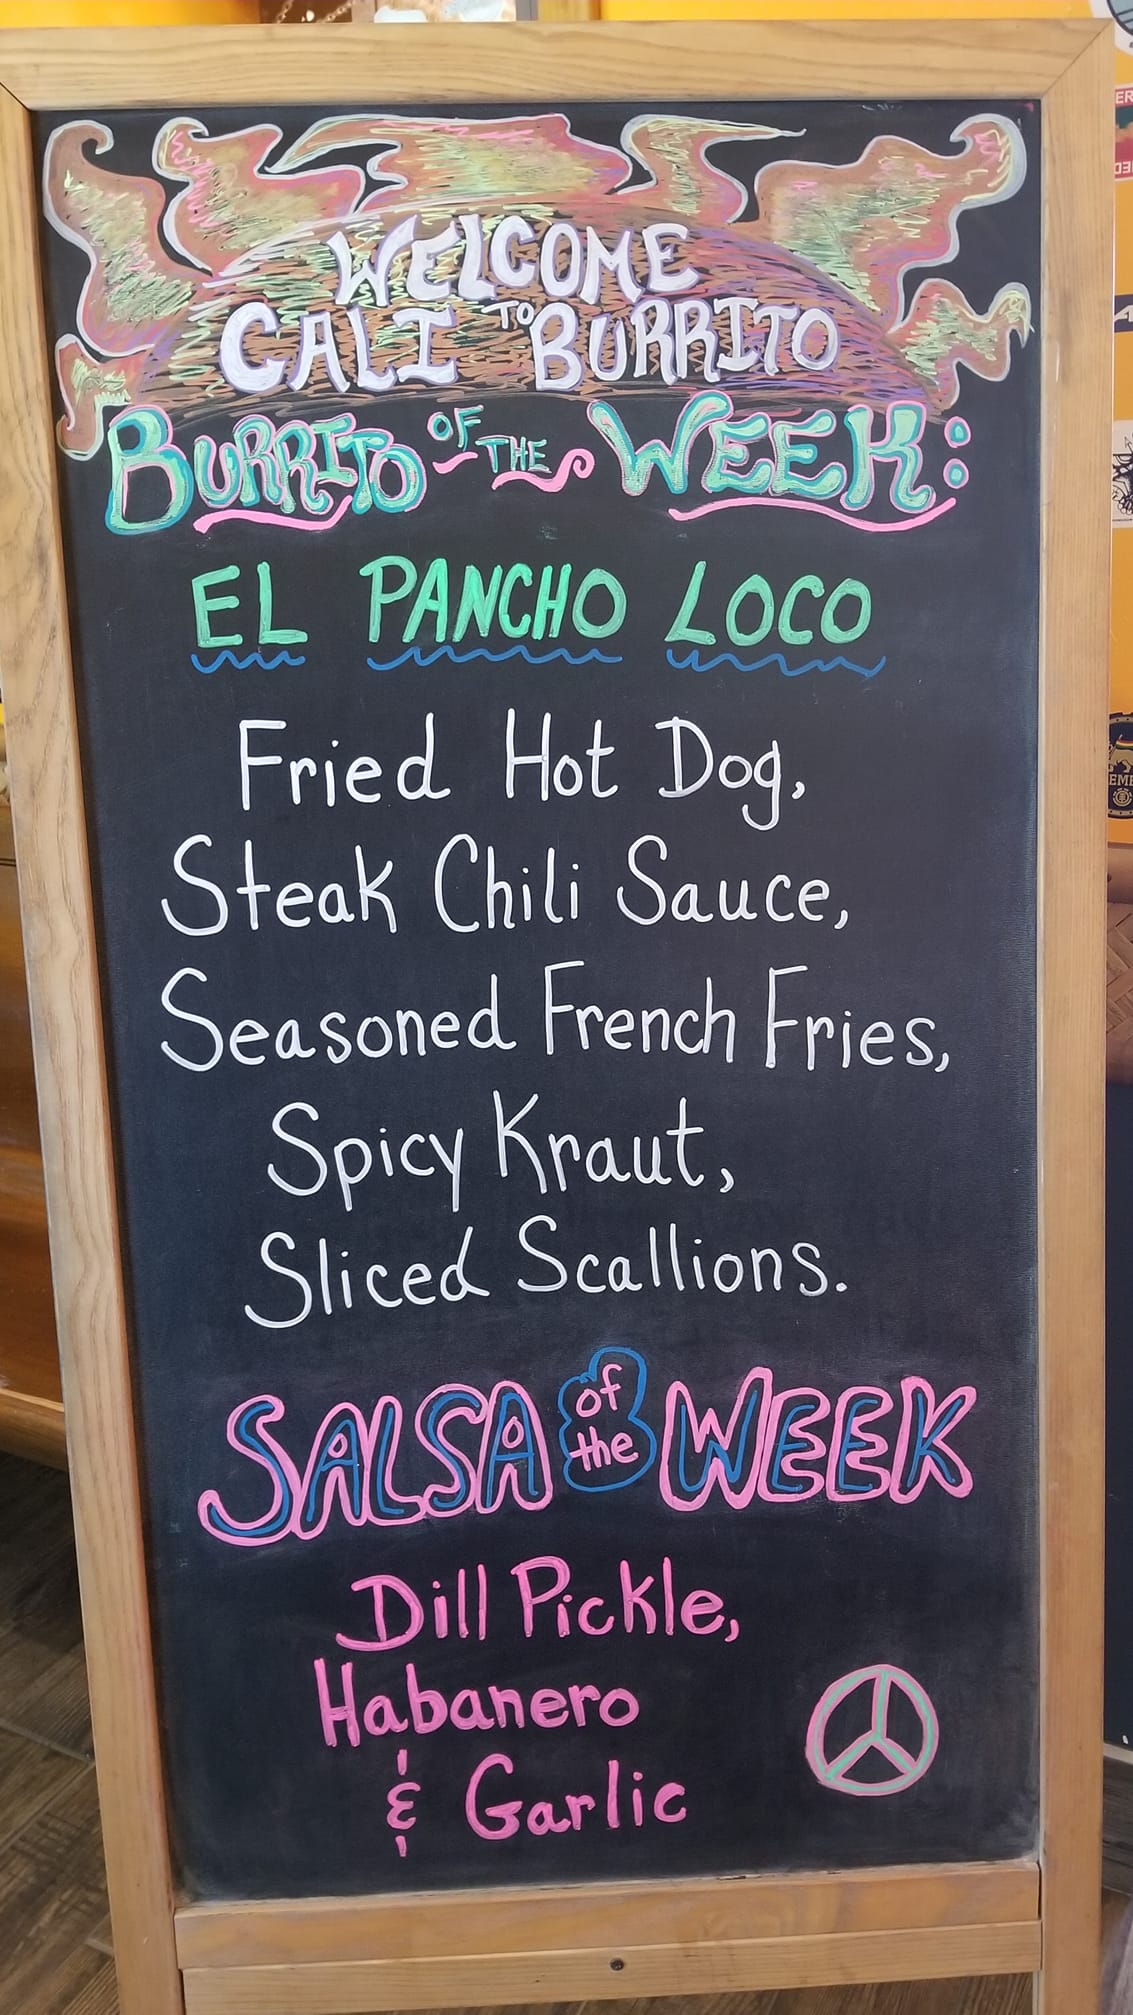 WELCOME
TO
CALI BURRITO
BURRITO OF THE WEEK:
EL PANCHO LOCO
Fried Hot Dog,
Steak Chili Sauce,
Seasoned French Fries,
Spicy Kraut,
Sliced Scallions.
SALSA of the WEEK
Dill Pickle,
Habanero
& Garlic